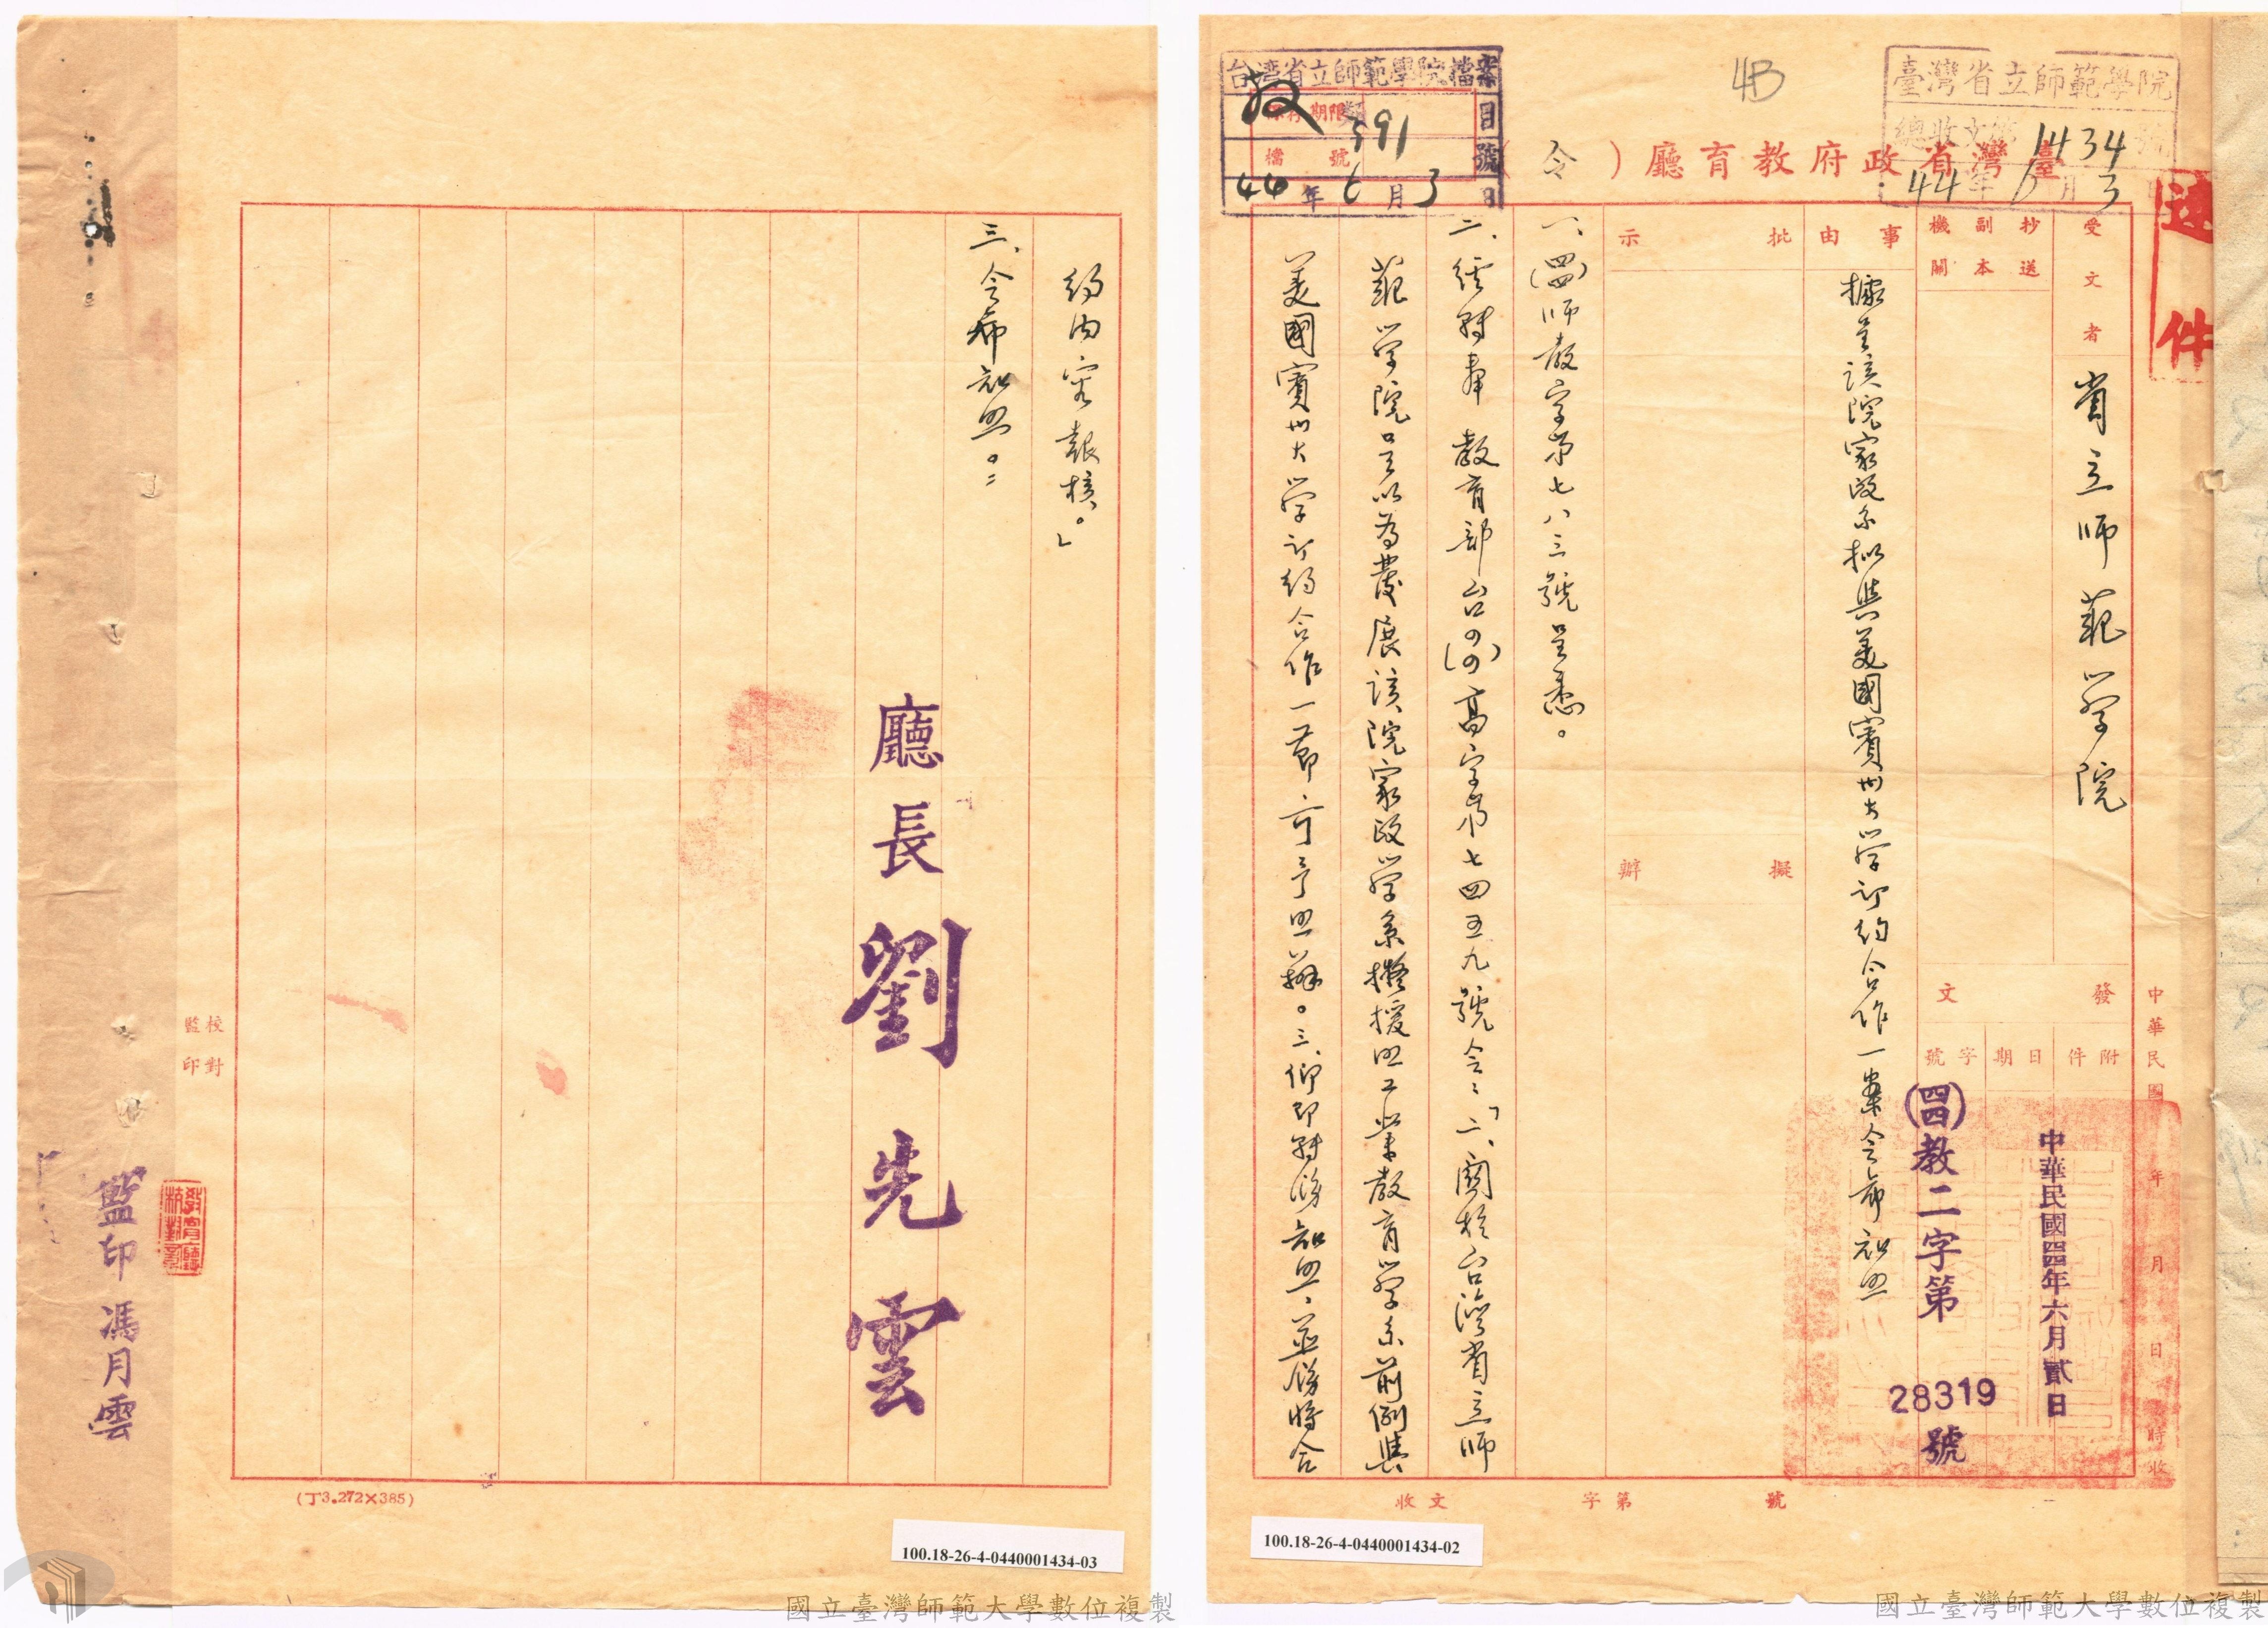 臺灣省立師範學院
總收文第1434號
44年6月3
速件
臺灣省政府教育廳（令）
4B
台湾省立師範學院檔案目號
教
保存期限
591
檔號
44年6月3日
受文者
省立師範学院
抄送副本機關
事由
據呈該院家政系擬與美國賓州大学訂約合作一案令希知照
批示
擬辦
發文
附件
日期
字號
中華民國四四年六月貳日
(四四)教二字第28319號
中華民國 年 月 日 時收
一、(四四)師教字第七八三號呈悉。
二、經轉奉 教育部台(44)高字第七四五九號令：「二、關於台灣省立師
範学院呈以為發展該院家政学系擬援照工業教育学系前例與
美國賓州大学訂約合作一節，可予照辦。三、仰即轉飭知照，並飭將合
收文 字第 號
100.18-26-4-0440001434-02
國立臺灣師範大學數位複製
約內容報核。」
三、令希知照。
廳長劉先雲
校對
監印
監印 馮月雲
(丁3.272×385)
100.18-26-4-0440001434-03
國立臺灣師範大學數位複製